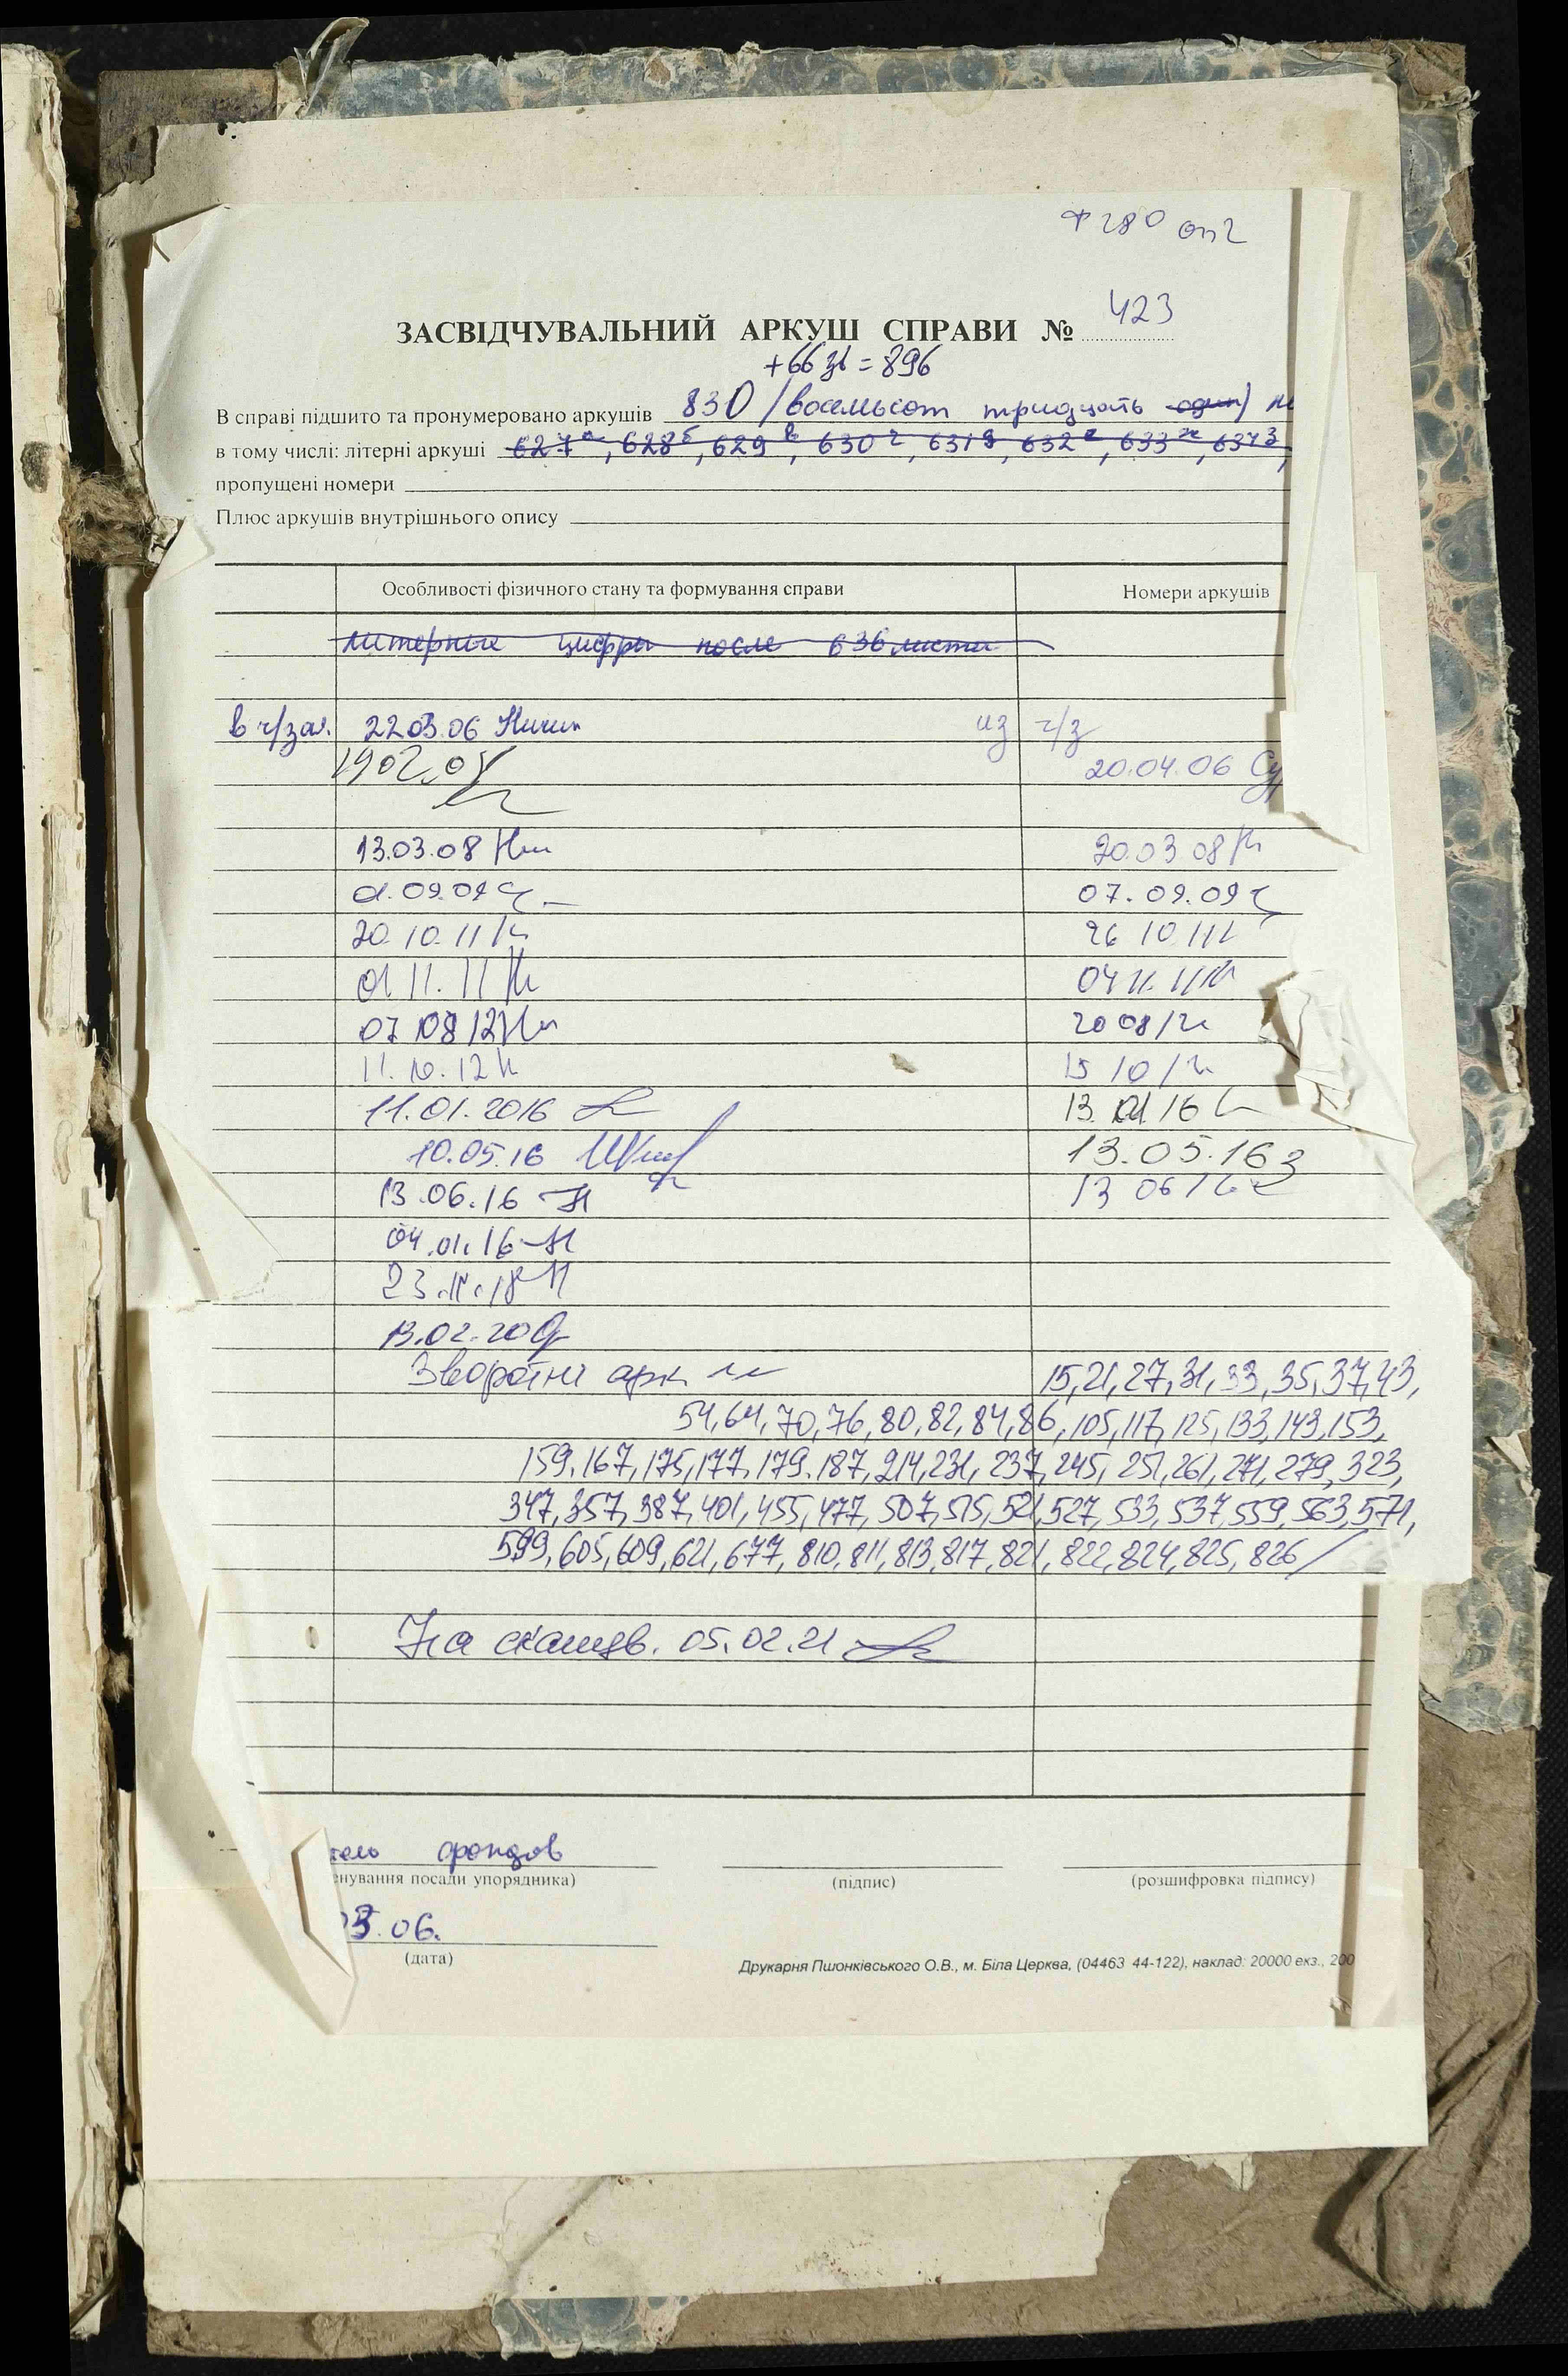 Ф 280 оп 2
ЗАСВІДЧУВАЛЬНИЙ АРКУШ СПРАВИ № 423
+66 зв = 896
В справі підшито та пронумеровано аркушів 830 /восемьсот тридцать один)
в тому числі: літерні аркуші 627а, 628б, 629в, 630г, 631д, 632е, 633ж, 637з,
пропущені номери
Плюс аркушів внутрішнього опису
Особливості фізичного стану та формування справи Номери аркушів
литерные цифры после 636 листа
в ч/зал. 22.03.06 из ч/з
20.04.06
13.03.08 20.03 08
01.09.09 07.09.09
20.10.11 26 10 11
01 11. 11 04 11. 11
07 08 12 20 08 12
11. 10. 12 15 10 12
11.01.2016 13. 01 16
10.05.16 13.05.16
13.06.16 13 06 16
04.01.16
23.11.18
13.02.20
Зворотні арк. 15, 21, 27, 31, 33, 35, 37, 43,
54, 64, 70, 76, 80, 82, 84, 86, 105, 117, 125, 133, 143, 153,
159, 167, 175, 177, 179, 187, 214, 231, 237, 245, 251, 261, 271, 279, 323,
347, 357, 387, 401, 455, 477, 507, 515, 521, 527, 533, 537, 559, 563, 571,
599, 605, 609, 621, 677, 810, 811, 813, 817, 821, 822, 824, 825, 826
На сканув. 05.02.21
тель фондов
енування посади упорядника) (підпис) (розшифровка підпису)
03.06.
(дата)
Друкарня Пшонківського О.В., м. Біла Церква, (04463 44-122), наклад: 20000 екз., 200